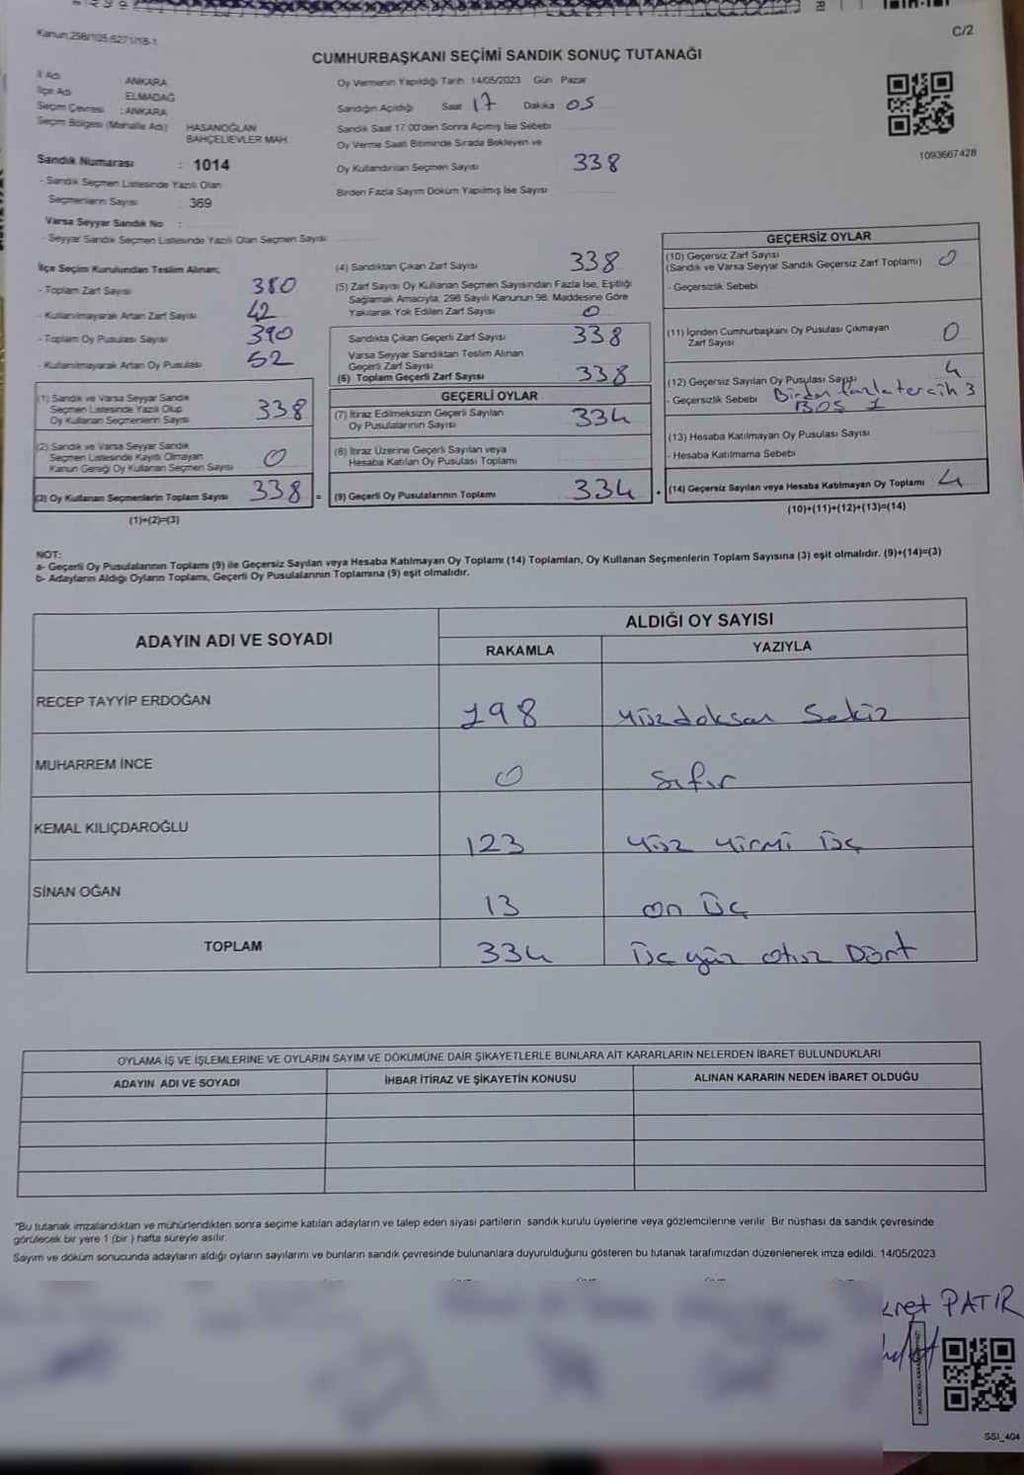 C/2
CUMHURBAŞKANI SEÇİMİ SANDIK SONUÇ TUTANAĞI
İl Adı ANKARA
İlçe Adı ELMADAĞ
Seçim Çevresi : ANKARA
Seçim Bölgesi (Mahalle Adı) HASANOĞLAN
BAHÇELİEVLER MAH.
Sandık Numarası : 1014
- Sandık Seçmen Listesinde Yazılı Olan
Seçmenlerin Sayısı 369
Varsa Seyyar Sandık No :
- Seyyar Sandık Seçmen Listesinde Yazılı Olan Seçmen Sayısı
Oy Vermenin Yapıldığı Tarih 14/05/2023 Gün Pazar
Sandığın Açıldığı Saat 17 Dakika 05
Sandık Saat 17.00'den Sonra Açılmış İse Sebebi
Oy Verme Saati Bitiminde Sırada Bekleyen ve
Oy Kullandırılan Seçmen Sayısı 338
Birden Fazla Sayım Döküm Yapılmış İse Sayısı
1093667428
İlçe Seçim Kurulundan Teslim Alınan;
- Toplam Zarf Sayısı 380
- Kullanılmayarak Artan Zarf Sayısı 42
- Toplam Oy Pusulası Sayısı 390
- Kullanılmayarak Artan Oy Pusulası 52
(1) Sandık ve Varsa Seyyar Sandık
Seçmen Listesinde Yazılı Olup
Oy Kullanan Seçmenlerin Sayısı 338
(2) Sandık ve Varsa Seyyar Sandık
Seçmen Listesinde Kayıtlı Olmayan
Kanun Gereği Oy Kullanan Seçmen Sayısı 0
(3) Oy Kullanan Seçmenlerin Toplam Sayısı 338
(1)+(2)=(3)
(4) Sandıktan Çıkan Zarf Sayısı 338
(5) Zarf Sayısı Oy Kullanan Seçmen Sayısından Fazla İse, Eşitliği
Sağlamak Amacıyla, 298 Sayılı Kanunun 98. Maddesine Göre
Yakılarak Yok Edilen Zarf Sayısı 0
Sandıkta Çıkan Geçerli Zarf Sayısı 338
Varsa Seyyar Sandıktan Teslim Alınan
Geçerli Zarf Sayısı
(6) Toplam Geçerli Zarf Sayısı 338
GEÇERLİ OYLAR
(7) İtiraz Edilmeksizin Geçerli Sayılan
Oy Pusulalarının Sayısı 334
(8) İtiraz Üzerine Geçerli Sayılan veya
Hesaba Katılan Oy Pusulası Toplamı
= (9) Geçerli Oy Pusulalarının Toplamı 334
GEÇERSİZ OYLAR
(10) Geçersiz Zarf Sayısı
(Sandık ve Varsa Seyyar Sandık Geçersiz Zarf Toplamı) 0
- Geçersizlik Sebebi
(11) İçinden Cumhurbaşkanı Oy Pusulası Çıkmayan
Zarf Sayısı 0
(12) Geçersiz Sayılan Oy Pusulası Sayısı 4
- Geçersizlik Sebebi Birden fazla tercih 3
BOŞ 1
(13) Hesaba Katılmayan Oy Pusulası Sayısı
- Hesaba Katılmama Sebebi
(14) Geçersiz Sayılan veya Hesaba Katılmayan Oy Toplamı 4
(10)+(11)+(12)+(13)=(14)
NOT:
a- Geçerli Oy Pusulalarının Toplamı (9) ile Geçersiz Sayılan veya Hesaba Katılmayan Oy Toplamı (14) Toplamları, Oy Kullanan Seçmenlerin Toplam Sayısına (3) eşit olmalıdır. (9)+(14)=(3)
b- Adayların Aldığı Oyların Toplamı, Geçerli Oy Pusulalarının Toplamına (9) eşit olmalıdır.
ADAYIN ADI VE SOYADI
ALDIĞI OY SAYISI
RAKAMLA YAZIYLA
RECEP TAYYİP ERDOĞAN 198 Yüzdoksan Sekiz
MUHARREM İNCE 0 Sıfır
KEMAL KILIÇDAROĞLU 123 Yüz Yirmi Üç
SİNAN OĞAN 13 on Üç
TOPLAM 334 Üç yüz otuz Dört
OYLAMA İŞ VE İŞLEMLERİNE VE OYLARIN SAYIM VE DÖKÜMÜNE DAİR ŞİKAYETLERLE BUNLARA AİT KARARLARIN NELERDEN İBARET BULUNDUKLARI
ADAYIN ADI VE SOYADI İHBAR İTİRAZ VE ŞİKAYETİN KONUSU ALINAN KARARIN NEDEN İBARET OLDUĞU
*Bu tutanak imzalandıktan ve mühürlendikten sonra seçime katılan adayların ve talep eden siyasi partilerin sandık kurulu üyelerine veya gözlemcilerine verilir. Bir nüshası da sandık çevresinde
görülecek bir yere 1 (bir ) hafta süreyle asılır.
Sayım ve döküm sonucunda adayların aldığı oyların sayılarını ve bunların sandık çevresinde bulunanlara duyurulduğunu gösteren bu tutanak tarafımızdan düzenlenerek imza edildi. 14/05/2023
PATIR
SSI_404